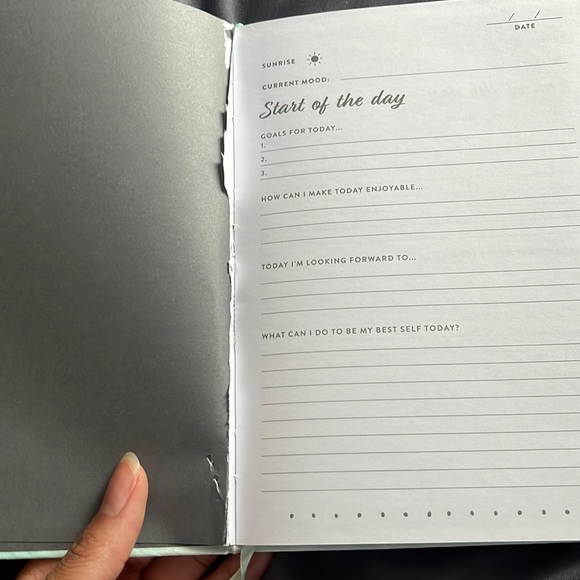 / /
DATE
SUNRISE
CURRENT MOOD:
Start of the day
GOALS FOR TODAY...
1.
2.
3.
HOW CAN I MAKE TODAY ENJOYABLE...
TODAY I'M LOOKING FORWARD TO...
WHAT CAN I DO TO BE MY BEST SELF TODAY?